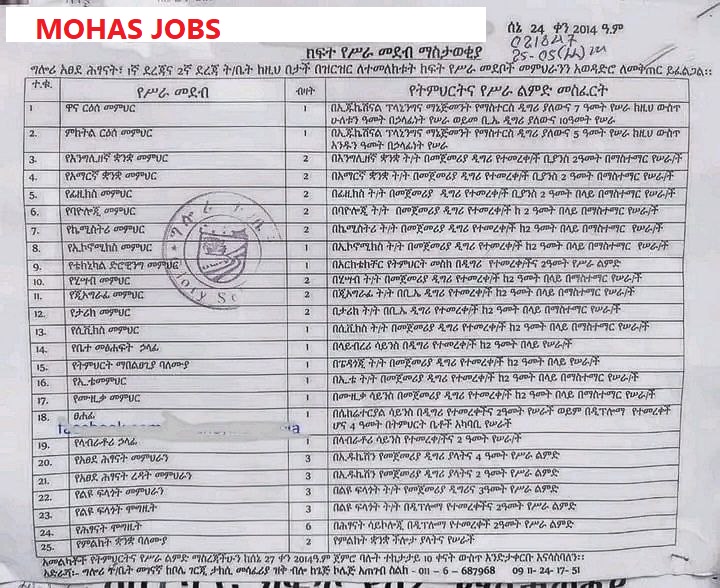 MOHAS JOBS
ሰኔ 24 ቀን 2014 ዓ.ም
ክፍተ የሥራ መደብ ማስታወቂያ
ግሎሪ አፀደ ሕፃናት፣ ፩ኛ ደረጃና 2ኛ ደረጃ ት/ቤት ከዚህ በታች በዝርዝር ለተመለከቱት ክፍት የሥራ መደቦች መምህራንን አወዳድሮ ለመቅጠር ይፈልጋል፡፡
ተ.ቁ. የሥራ መደብ ብዛት የትምህርትና የሥራ ልምድ መስፈርት
1 ዋና ርዕሰ መምህር 1 በኢዱኬሽናል ፕላኒንግና ማኔጅመንት የማስተርስ ዲግሪ ያለውና 7 ዓመት የሠራ ከዚህ ውስጥ
ሁለቱን ዓመት በኃላፊነት የሠራ ወይም ቢ.ኤ ዲግሪ ያለውና 10ዓመት የሠራ
2. ምክትል ርዕሰ መምህር 1 በኢዱኬሽናል ፕላኒንግና ማኔጅመንት የማስተርስ ዲግሪ ያለውና 5 ዓመት የሠራ ከዚህ ውስጥ
አንዱን ዓመት በኃላፊነት የሠራ
3. የእንግሊዘኛ ቋንቋ መምህር 2 በእንግሊዘኛ ቋንቋ ት/ት በመጀመሪያ ዲግሪ የተመረቀ/ች ቢያንስ 2ዓመት በማስተማር የሠራ/ች
4. የአማርኛ ቋንቋ መምህር 2 በአማርኛ ቋንቋ ት/ት በመጀመሪያ ዲግሪ የተመረቀ/ች ቢያንስ 2 ዓመት በማስተማር የሠራ/ች
5. የፊዚክስ መምህር 2 በፊዚክስ ት/ት በመጀመሪያ ዲግሪ የተመረቀ/ች ቢያንስ 2 ዓመት በላይ በማስተማር የሠራ/ች
6. የባዮሎጂ መምህር 2 በባዮሎጂ ት/ት በመጀመሪያ ዲግሪ የተመረቀ/ች ከ 2 ዓመት በላይ በማስተማር የሠራ/ች
7. የኬሚስትሪ መምህር 2 በኬሚስትሪ ት/ት በመጀመሪያ ዲግሪ የተመረቀ/ች ከ2 ዓመት በላይ በማስተማር የሠራ/ች
8. የኢኮኖሚክስ መምህር 1 በኢኮኖሚክስ ት/ት በመጀመሪያ ዲግሪ የተመረቀ/ች ከ2 ዓመት በላይ በማስተማር የሠራ/ች
9. የቴክኒካል ድሮዊንግ መምህር 1 በአርክቴክቸር የትምህርት መስክ በዲግሪ የተመረቀ/ችና 2ዓመት የሥራ ልምድ
10. የሂሳብ መምህር 2 በሂሳብ ት/ት በመጀመሪያ ዲግሪ የተመረቀ/ች ከ2 ዓመት በላይ በማስተማር የሠራ/ች
11. የጂኦግራፊ መምህር 2 በጂኦግራፊ ት/ት በቢ.ኤ ዲግሪ የተመረቀ/ች ከ2 ዓመት በላይ በማስተማር የሠራ/ች
12. የታሪክ መምህር 2 በታሪክ ት/ት በቢ.ኤ ዲግሪ የተመረቀ/ች ከ2 ዓመት በላይ በማስተማር የሠራ/ች
13. የሲቪክስ መምህር 1 በሲቪክስ ት/ት በመጀመሪያ ዲግሪ የተመረቀ/ች ከ2 ዓመት በላይ በማስተማር የሠራ/ች
14. የቤተ መፅሐፍት ኃላፊ 1 በላይብረሪ ሳይንስ በዲግሪ የተመረቀ/ች ከ2 ዓመት በላይ የሠራ/ች
15. የትምህርት ማበልፀጊያ ባለሙያ 1 በፔዳጎጂ ት/ት በመጀመሪያ ዲግሪ የተመረቀ/ች ከ2 ዓመት በላይ የሠራ/ች
16. የኢ.ቴመምህር 1 በኢ.ቴ ት/ት በመጀመሪያ ዲግሪ የተመረቀ/ች ከ2 ዓመት በላይ በማስተማር የሠራ/ች
17. የሙዚቃ መምህር 1 በሙዚቃ ሳይንስ በመጀመሪያ ዲግሪ የተመረቀ/ች ከ2 ዓመት በላይ በማስተማር የሠራ/ች
18. ፀሐፊ 1 በሴክሬተርያል ሳይንስ በዲግሪ የተመረቀችና 2ዓመት የሠራች ወይም በዲፕሎማ የተመረቀች
ሆና 4 ዓመት በትምህርት ቤቶች አካባቢ የሠራች
19. የላብራቶሪ ኃላፊ 1 በላብራቶሪ ሳይንስ የተመረቀ/ችና 2 ዓመት የሠራ/ች
20. የአፀደ ሕፃናት መምህራን 3 በኢ.ዱኬሽን የመጀመሪያ ዲግሪ ያላትና 4 ዓመት የሥራ ልምድ
21. የአፀደ ሕፃናት ረዳት መምህራን 3 በኢ.ዱኬሽን የመጀመሪያ ዲግሪ ያላትና 2 ዓመት የሥራ ልምድ
22. የልዩ ፍላጎት መምህራን 3 በልዩ ፍላጎት ት/ት የመጀመሪያ ዲግሪና 3ዓመት የሥራ ልምድ
23. የልዩ ፍላጎት ሞግዚት 3 በልዩ ፍላጎት ት/ት በዲፕሎማ የተመረቀችና 2 ዓመት የሥራ ልምድ
24. የሕፃናት ሞግዚት 6 በሕፃናት ሳይኮሎጂ በዲፕሎማ የተመረቀች 2ዓመት የሥራ ልምድ
25. የምልክት ቋንቋ ባለሙያ 2 የምልክት ቋንቋ ችሎታ ያላት የሠራች
አመልካቾች የትምህርትና የሥራ ልምድ ማስረጃችሁን ከሰኔ 27 ቀን 2014ዓ.ም ጀምሮ ባሉት ተከታታይ 10 ቀናት ውስጥ እንድታቀርቡ እናሳስባለን፡፡
አድራሻ፡- ግሎሪ ት/ቤት መገናኛ ከቦሌ ገርጂ ታክሲ መሳፈሪያ ዝቅ ብሎ ስልክ 011 – 6 – 687968 09 11- 24 -17- 51